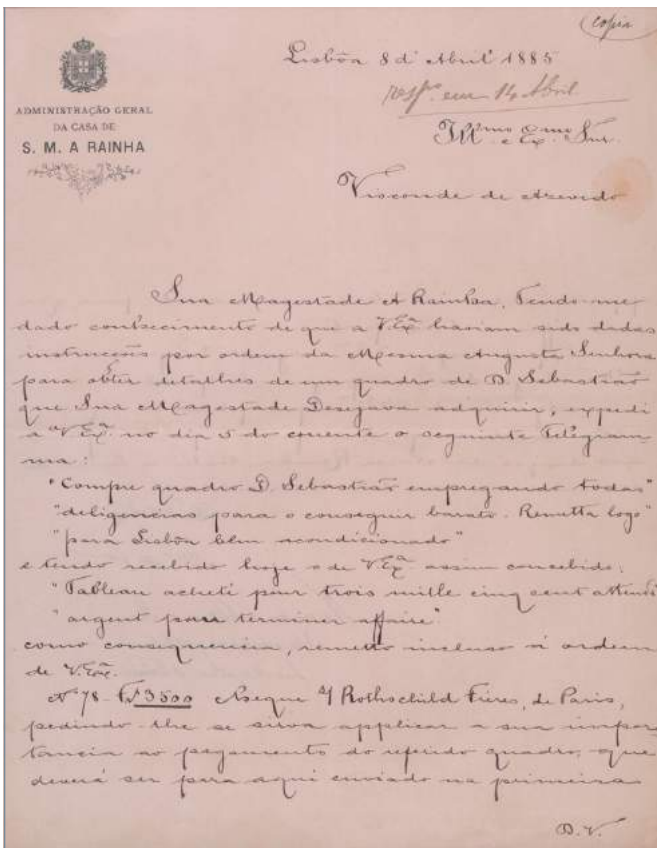 (copia)
Lisbôa 8 d'Abril 1885
resp.ᵈᵃ em 14 Abril
ADMINISTRAÇÃO GERAL
DA CASA DE
S. M. A RAINHA
Ill.mo e Ex.mo Snr.
Visconde de Azevedo
Sua Magestade A Rainha, Tendo-me
dado conhecimento de que a V.Exª haviam sido dadas
instrucções por ordem da Mesma Augusta Senhora
para obter detalhes de um quadro de D. Sebastião
que Sua Magestade Desejava adquirir, expedi
a V.Exª no dia 5 do corrente o seguinte Telegram
ma:
"Compre quadro D. Sebastião empregando todas"
"deligencias para o conseguir barato. Remetta logo"
"para Lisbôa bem acondicionado"
e tendo recebido hoje o de V.Exª assim concebido:
"Tableau acheté pour trois mille cinq cent attends"
"argent para terminer affaire"
como consequencia, remetto incluso á ordem
de V.Exª.
Nº 78 - F 3500 Cheque s/ Rothschild Frères, de Paris,
pedindo-lhe se sirva applicar a sua impor
tancia ao pagamento do referido quadro, que
deverá ser para aqui enviado na primeira